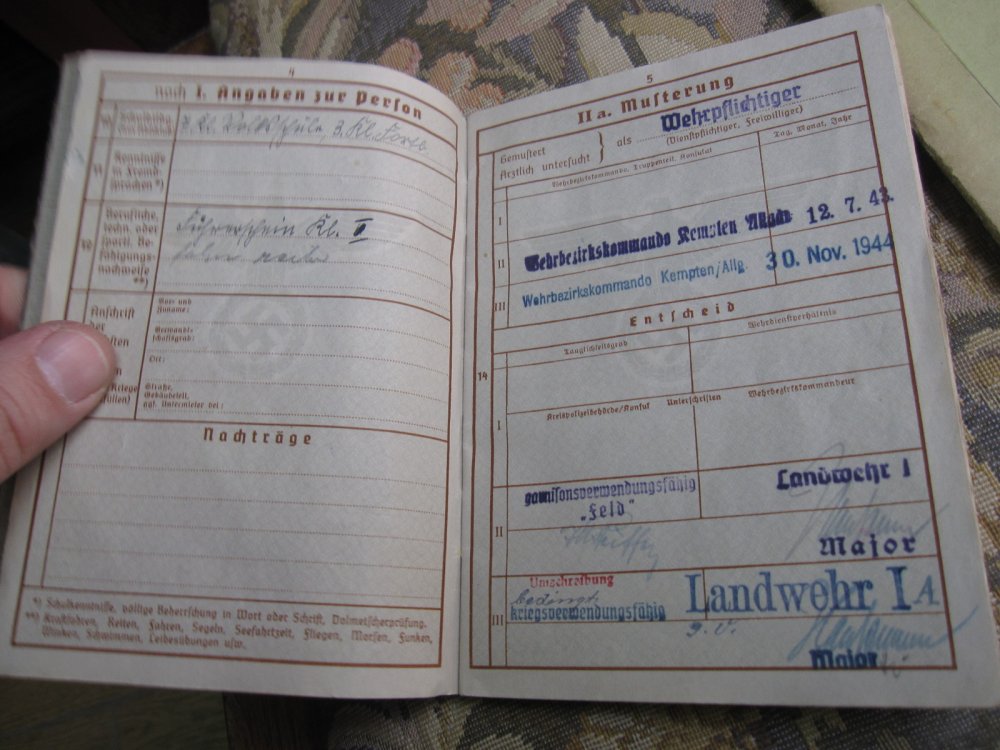 4
noch I. Angaben zur Person
Kl. Volksschule, 3. Kl. Fortb.
Kenntnisse
in Fremd-
sprachen *)
Berufliche,
techn. oder
sportl. Be-
fähigungs-
nachweise
**)
Führerschein Kl. II
Anschrift
der
Vor- und
Zuname:
Verwandt-
schaftsgrad:
Ort:
Straße,
Gebäudeteil,
ggf. Untermieter bei:
Nachträge
*) Schulkenntnisse, völlige Beherrschung in Wort oder Schrift, Dolmetscherprüfung.
**) Kraftfahren, Reiten, Fahren, Segeln, Seefahrtzeit, Fliegen, Morsen, Funken,
Winken, Schwimmen, Leibesübungen usw.
5
IIa. Musterung
Gemustert
Ärztlich untersucht
als
Wehrpflichtiger
(Dienstpflichtiger, Freiwilliger)
Wehrbezirkskommando, Truppenteil, Konsulat
Tag, Monat, Jahr
I
II
Wehrbezirkskommando Kempten 12. 7. 43
III
Wehrbezirkskommando Kempten/Allg. 30. Nov. 1944
Entscheid
14
Tauglichkeitsgrad
Wehrdienstverhältnis
I
Kreispolizeibehörde/Konsul
Unterschriften
Wehrbezirkskommandeur
II
garnisonsverwendungsfähig
„Feld"
Landwehr I
Major
III
Umschreibung
bedingt
kriegsverwendungsfähig
Landwehr I A
Major